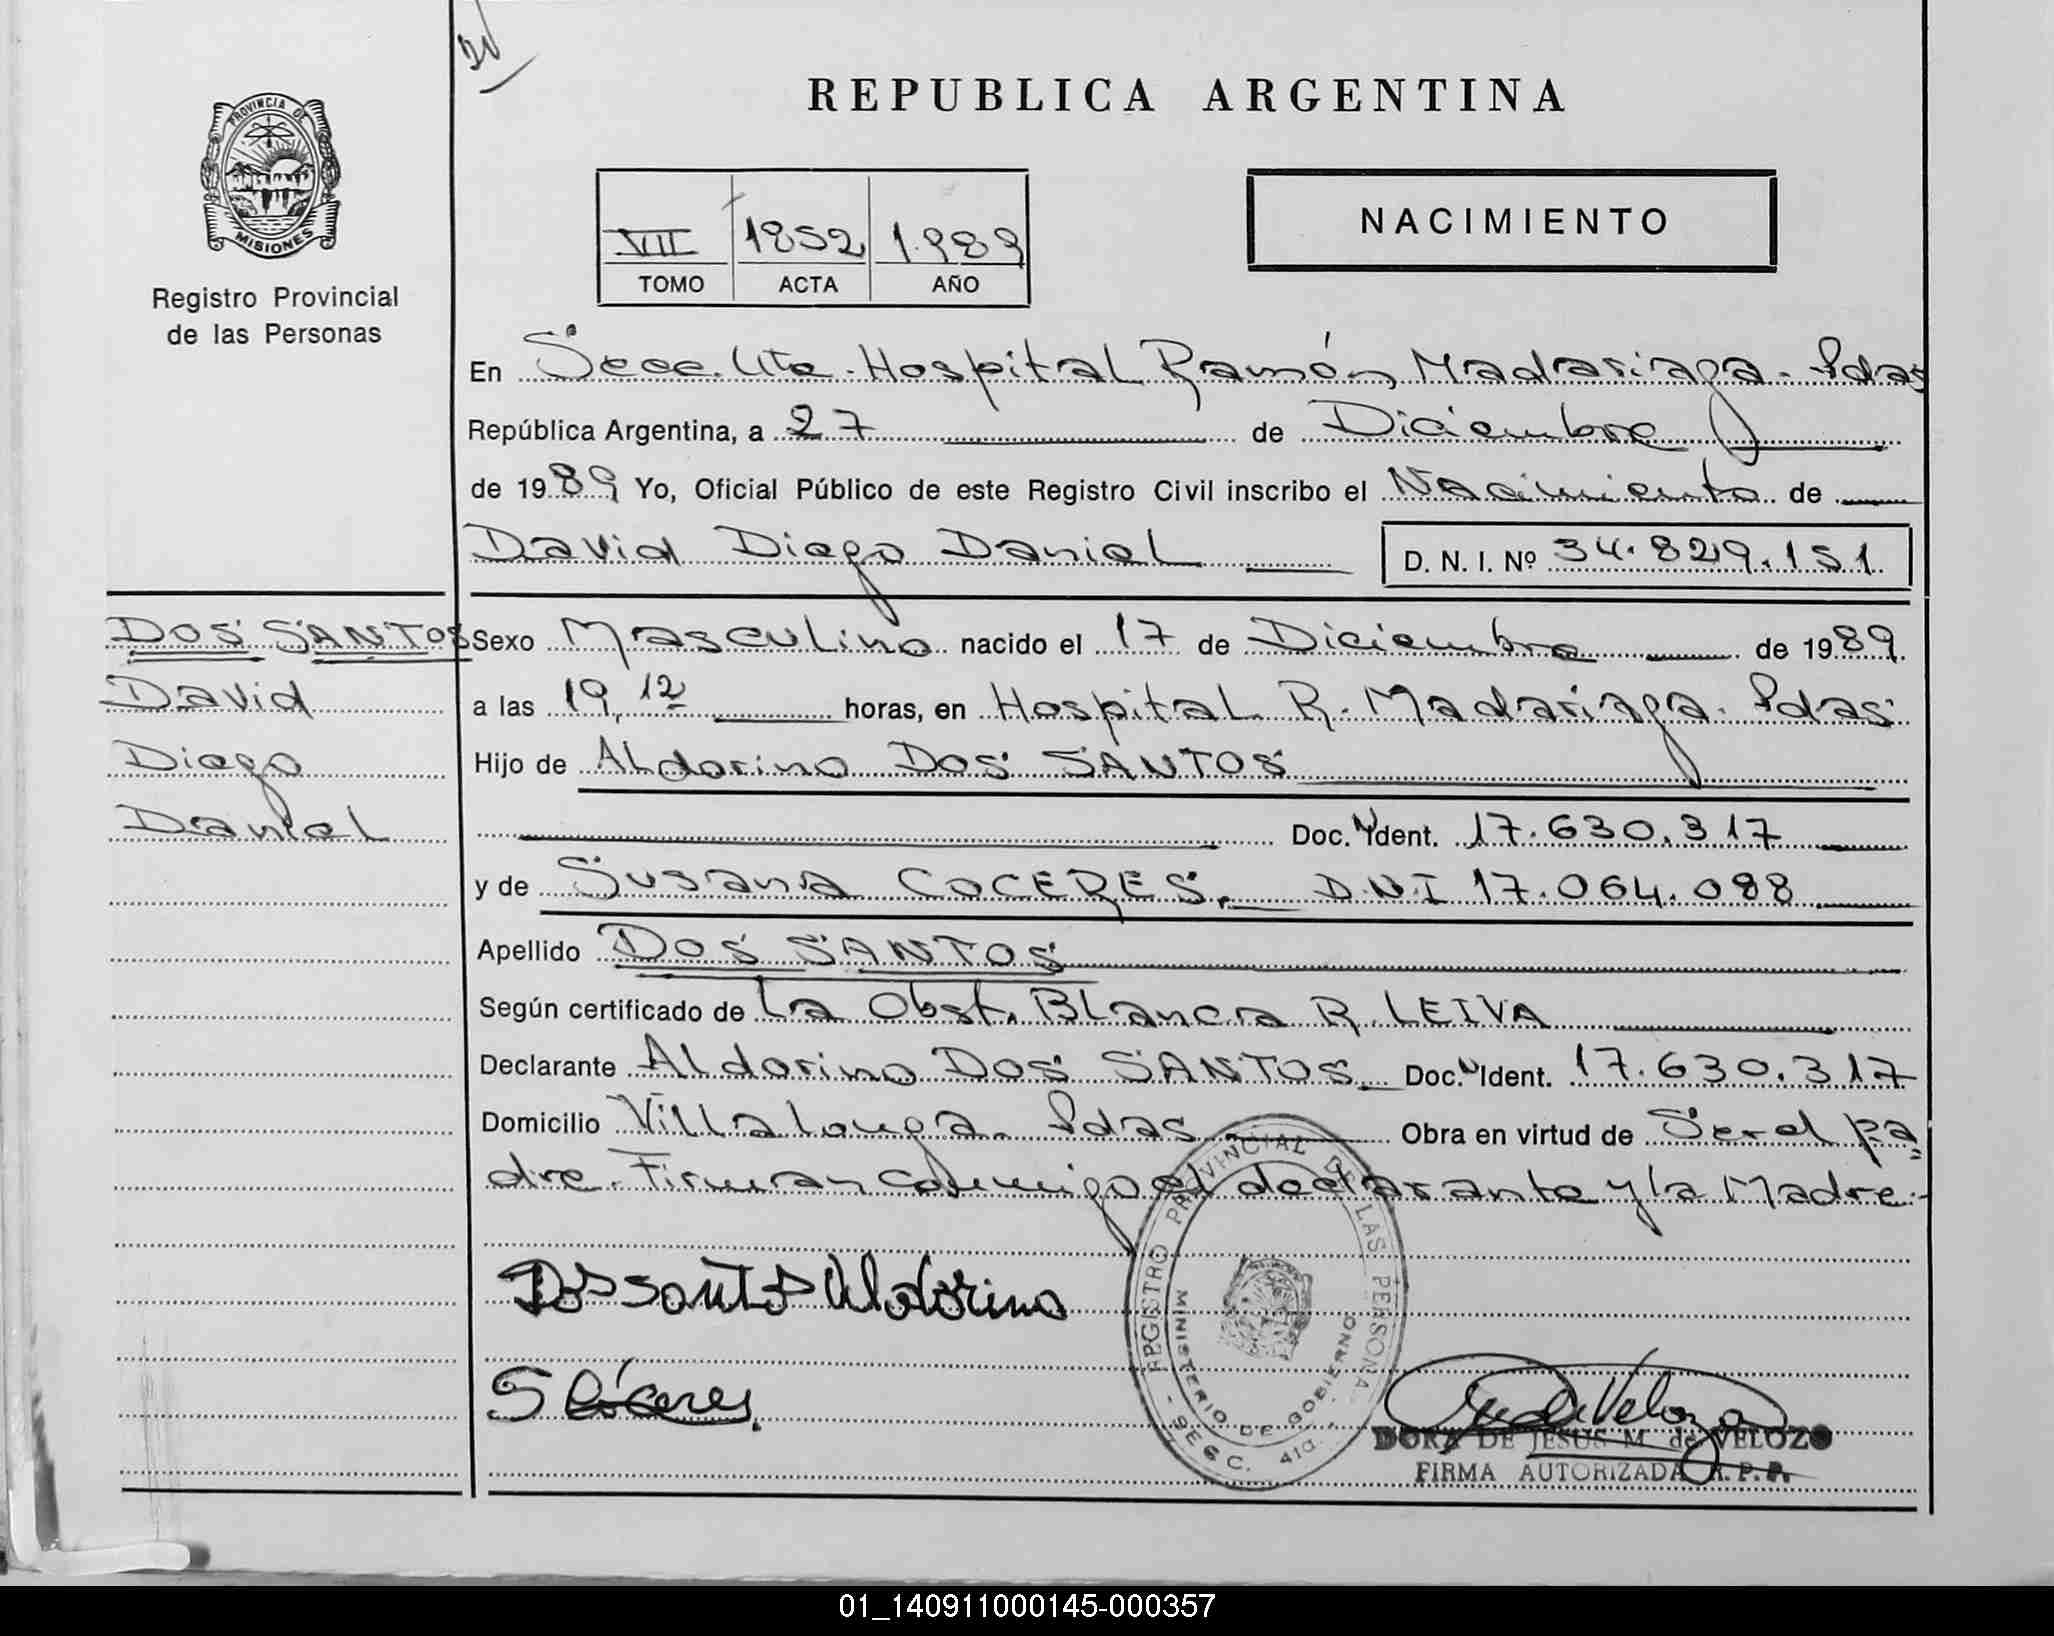 20
PROVINCIA DE
MISIONES
Registro Provincial
de las Personas
REPUBLICA ARGENTINA
VII 1852 1.989
TOMO ACTA AÑO
NACIMIENTO
En Secc. 4ta. Hospital Ramón Madariaga. Pdas
República Argentina, a 27 de Diciembre
de 1989 Yo, Oficial Público de este Registro Civil inscribo el Nacimiento de
David Diego Daniel D. N. I. Nº 34.829.151
DOS SANTOS
David
Diego
Daniel
Sexo Masculino nacido el 17 de Diciembre de 1989
a las 19,12 horas, en Hospital R. Madariaga. Pdas
Hijo de Aldorino DOS SANTOS
Doc. N Ident. 17.630.317
y de Susana COCERES. D.N.I 17.064.088
Apellido DOS SANTOS
Según certificado de La Obst. Blanca R. LEIVA
Declarante Aldorino DOS SANTOS Doc. N Ident. 17.630.317
Domicilio Villalonga. Pdas Obra en virtud de Ser el pa=
dre. Firman conmigo el declarante y la Madre.-
Dos Santos Aldorino
S Cóceres.
REGISTRO PROVINCIAL DE LAS PERSONAS
MINISTERIO DE GOBIERNO
- SECC. 4ta. -
DORA DE JESUS M. de VELOZO
FIRMA AUTORIZADA R. P. P.
01_140911000145-000357